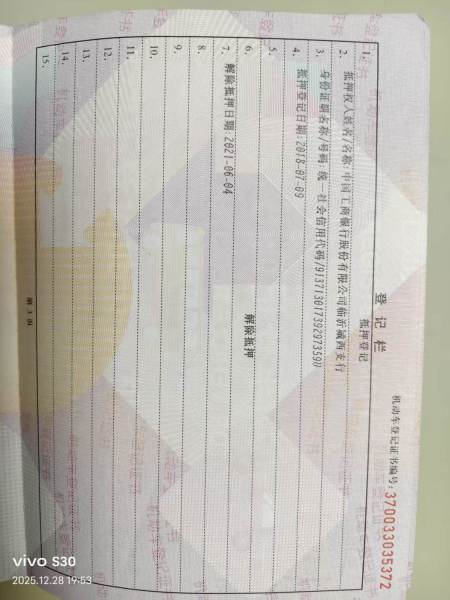 机动车登记证书编号:370033035372
登记栏
1.
抵押登记
2. 抵押权人姓名/名称:中国工商银行股份有限公司临沂城西支行
3. 身份证明名称/号码:统一社会信用代码/91371301739297359U
4. 抵押登记日期:2018-07-09
5.
6.
解除抵押
7. 解除抵押日期:2021-06-04
8.
9.
10.
11.
12.
13.
14.
15.
第 3 页
vivo S30
2025.12.28 19:53